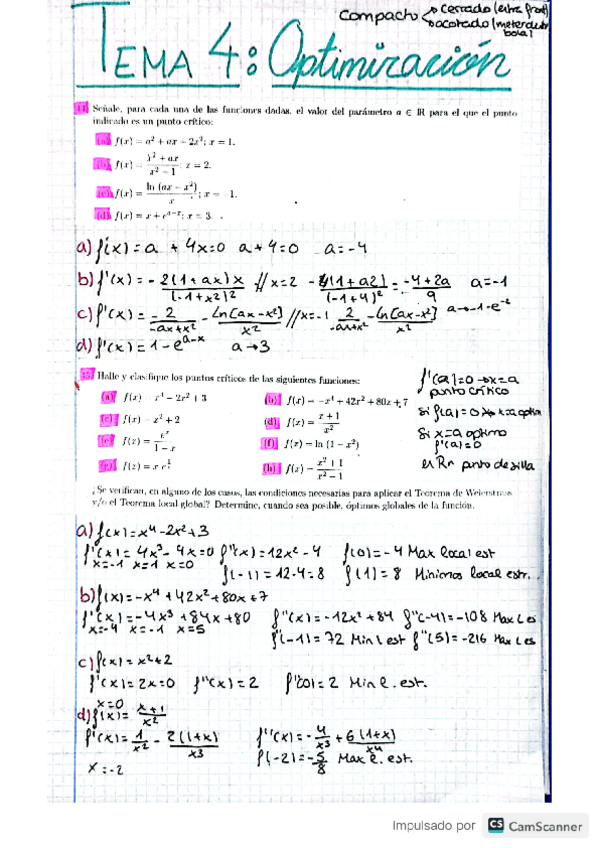 compacto → cerrado (entra front)
→ acotado (meter dentro bola)
TEMA 4: Optimización
14 Señale, para cada una de las funciones dadas, el valor del parámetro a ∈ ℝ para el que el punto
indicado es un punto crítico:
(a) f(x) = a² + ax + 2x²; x = 1.
(b) f(x) = (x² + ax)/(x² − 1); x = 2.
(c) f(x) = ln (ax − x²)/x; x = −1.
(d) f(x) = x + e^(a−x); x = 3.
a) f'(x) = a + 4x=0 a+4=0 a=-4
b) f'(x) = - 2(1+ax)x/(-1+x2)² // x=2 - 4(1+a2)/(-1+4)² = -4+2a/9 a=-1
c) f'(x) = - 2/-ax+x² - ln(ax-x²)/x² // x=-1 2/-ax+x² - ln(ax-x²)/x² a→-1-e^-2
d) f'(x) = 1-e^(a-x) a→3
15 Halle y clasifique los puntos críticos de las siguientes funciones:
(a) f(x) = x⁴ − 2x² + 3 (b) f(x) = −x⁴ + 42x² + 80x + 7
(c) f(x) = x² + 2 (d) f(x) = (x + 1)/x²
(e) f(x) = eˣ/(1 − x) (f) f(x) = ln (1 − x²)
(g) f(x) = x e^(1/x) (h) f(x) = (x² + 1)/(x² − 1)
f'(a)=0 → x=a
punto crítico
Si x=a optimo
f'(a)=0
en Rn punto de silla
¿Se verifican, en alguno de los casos, las condiciones necesarias para aplicar el Teorema de Weierstrass
y/o el Teorema local-global? Determine, cuando sea posible, óptimos globales de la función.
a) f(x)=x⁴-2x²+3
f'(x)= 4x³-4x=0 f''(x)=12x²-4 f(0)=-4 Max local est
x=-1 x=1 x=0
f(-1)=12-4=8 f(1)=8 Minimos local estr.
b) f(x)=-x⁴+42x²+80x+7
f'(x)=-4x³+84x+80 f''(x)=-12x²+84 f''(-4)=-108 Max L es
x=-4 x=-1 x=5
f''(-1)=72 Min L est f''(5)=-216 Max L es
c) f(x)=x²+2
f'(x)=2x=0 f''(x)=2 f''(0)=2 Min l. est.
x=0
d) f(x)= x+1/x²
f'(x)= 1/x² - 2(1+x)/x3 f''(x)=-4/x³ + 6(1+x)/x4
x=-2 f(-2)=-5/8 Max l. est.
Impulsado por CS CamScanner